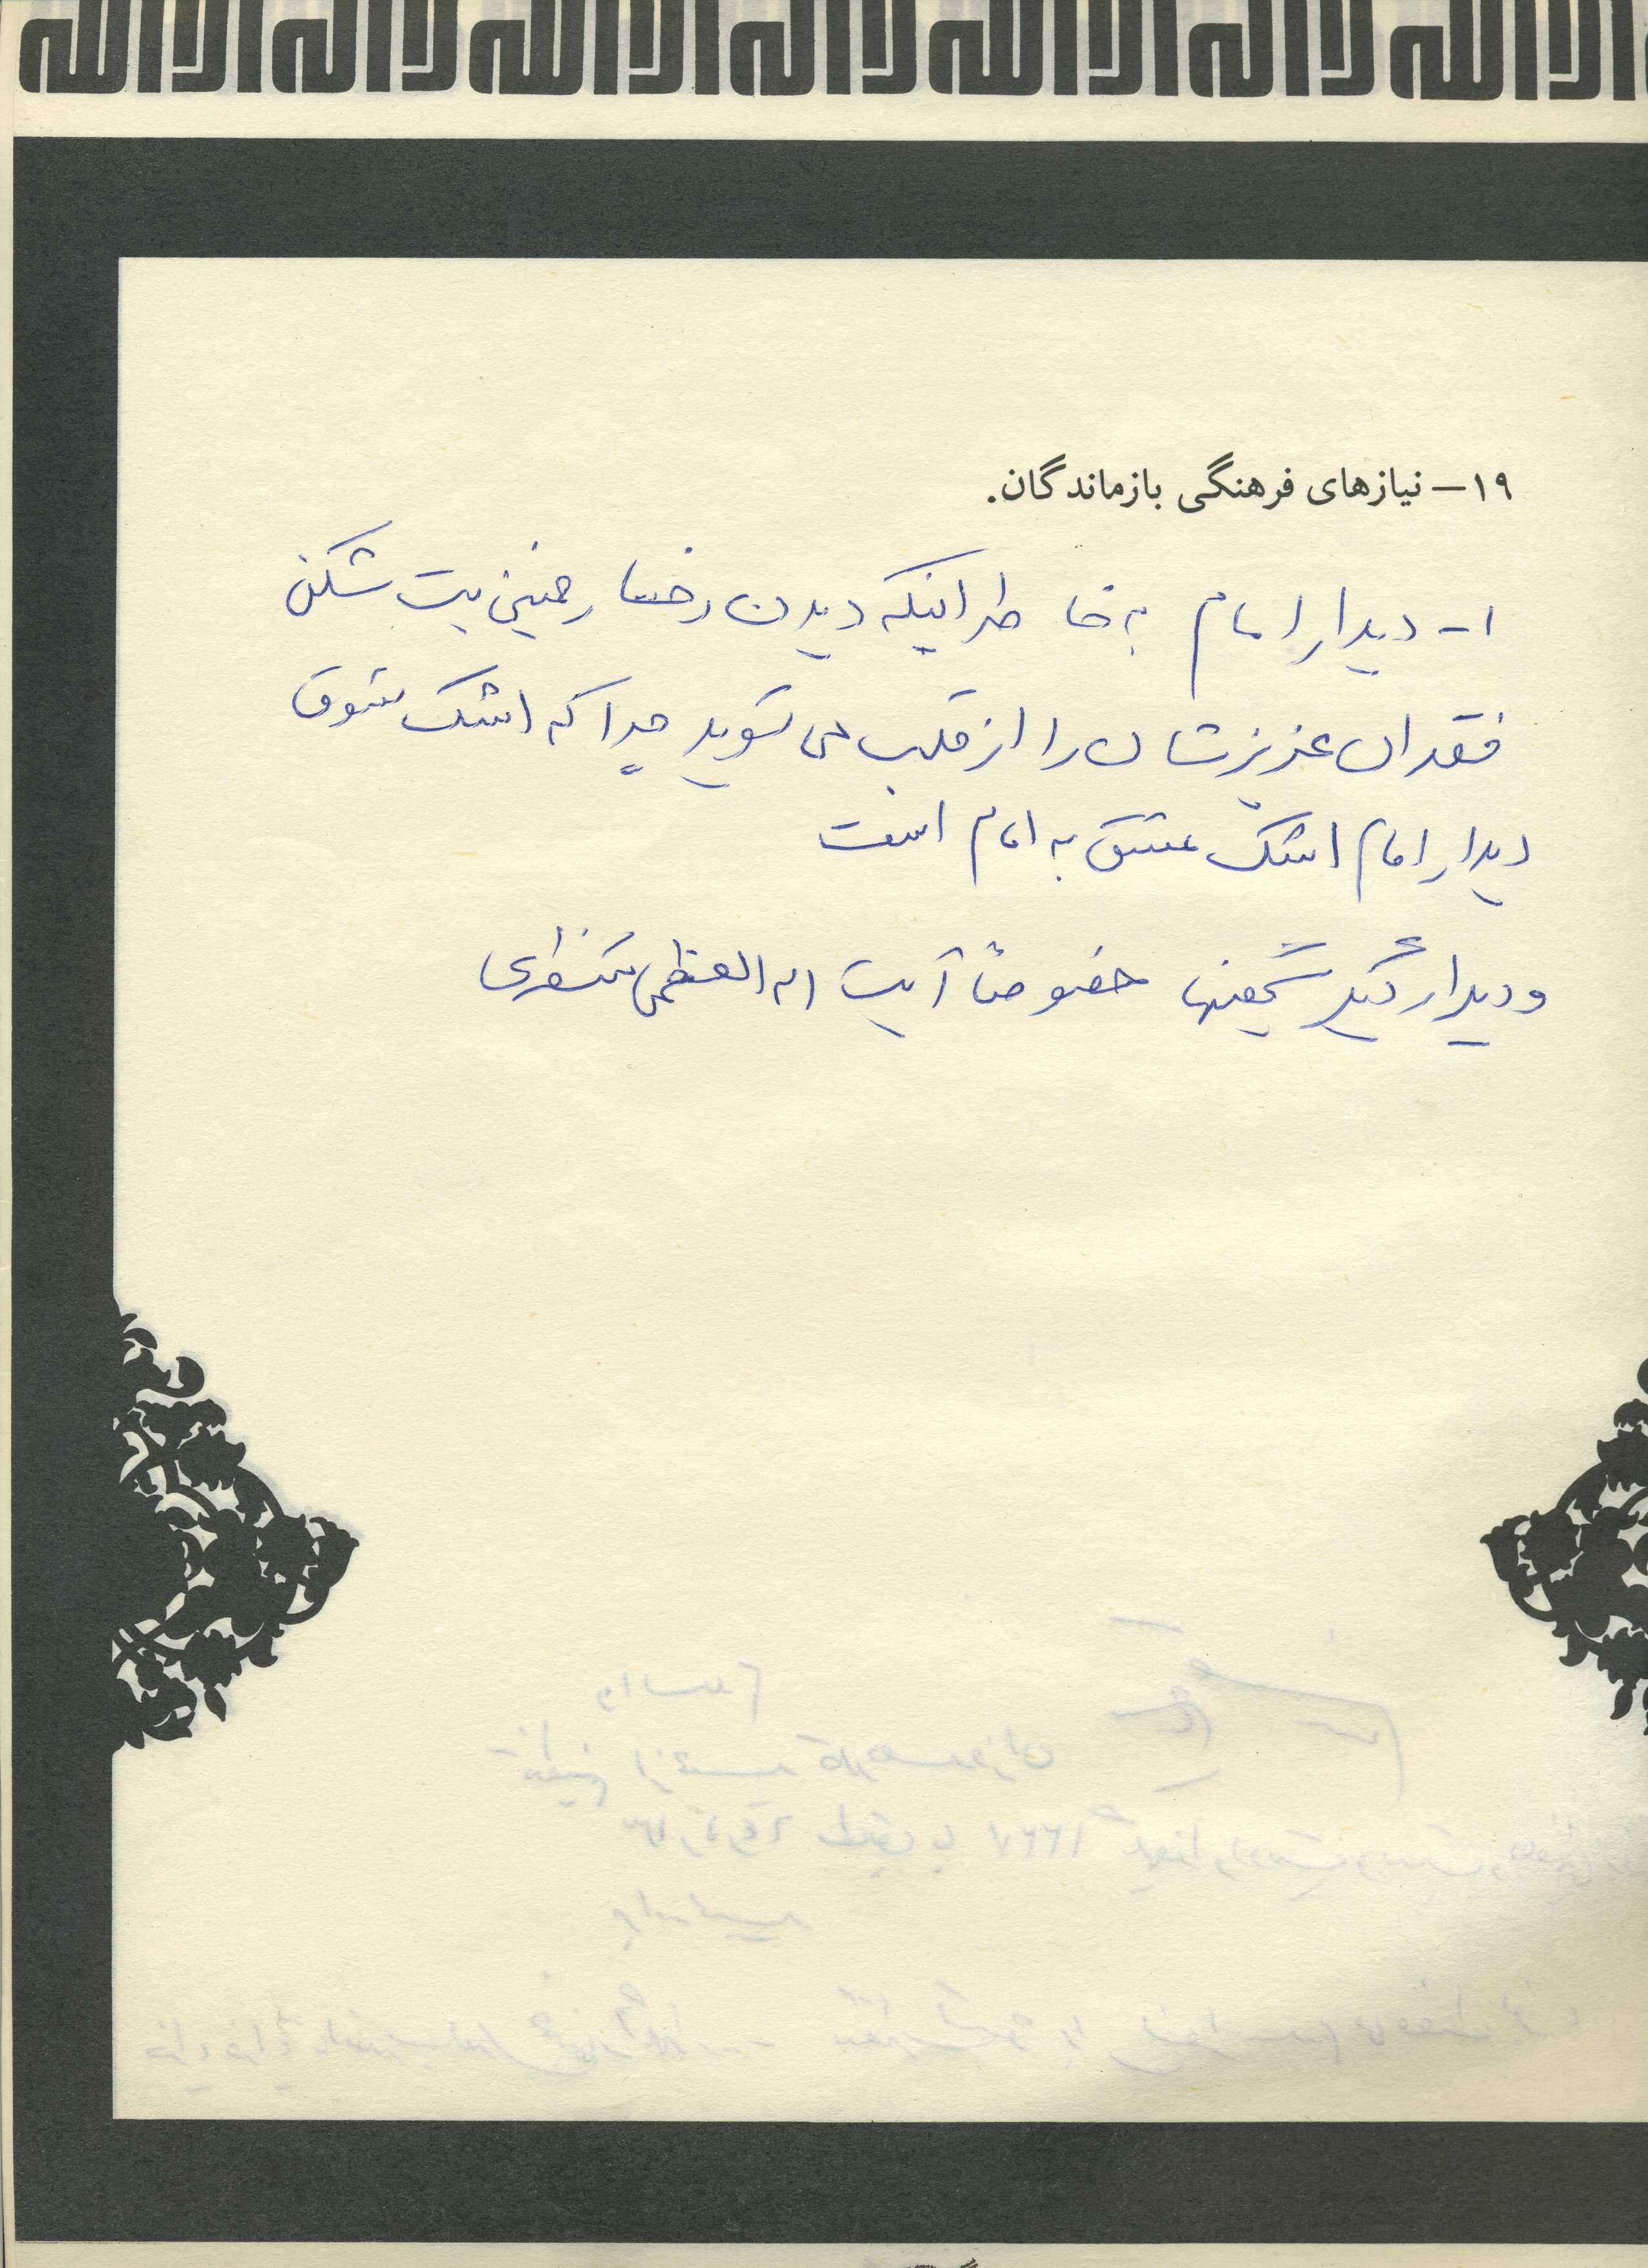 لا اله الا الله لا اله الا الله لا اله الا الله
۱۹– نیازهای فرهنگی بازماندگان.
۱- دیدار امام به خاطر اینکه دیدن رخسار خمینی بت شکن
فقدان عزیزشان را از قلب می شوید چرا که اشک شوق
دیدار امام اشک عشق به امام است
و دیدار دیگر شخصیتها خصوصاً آیت الله العظمی منتظری